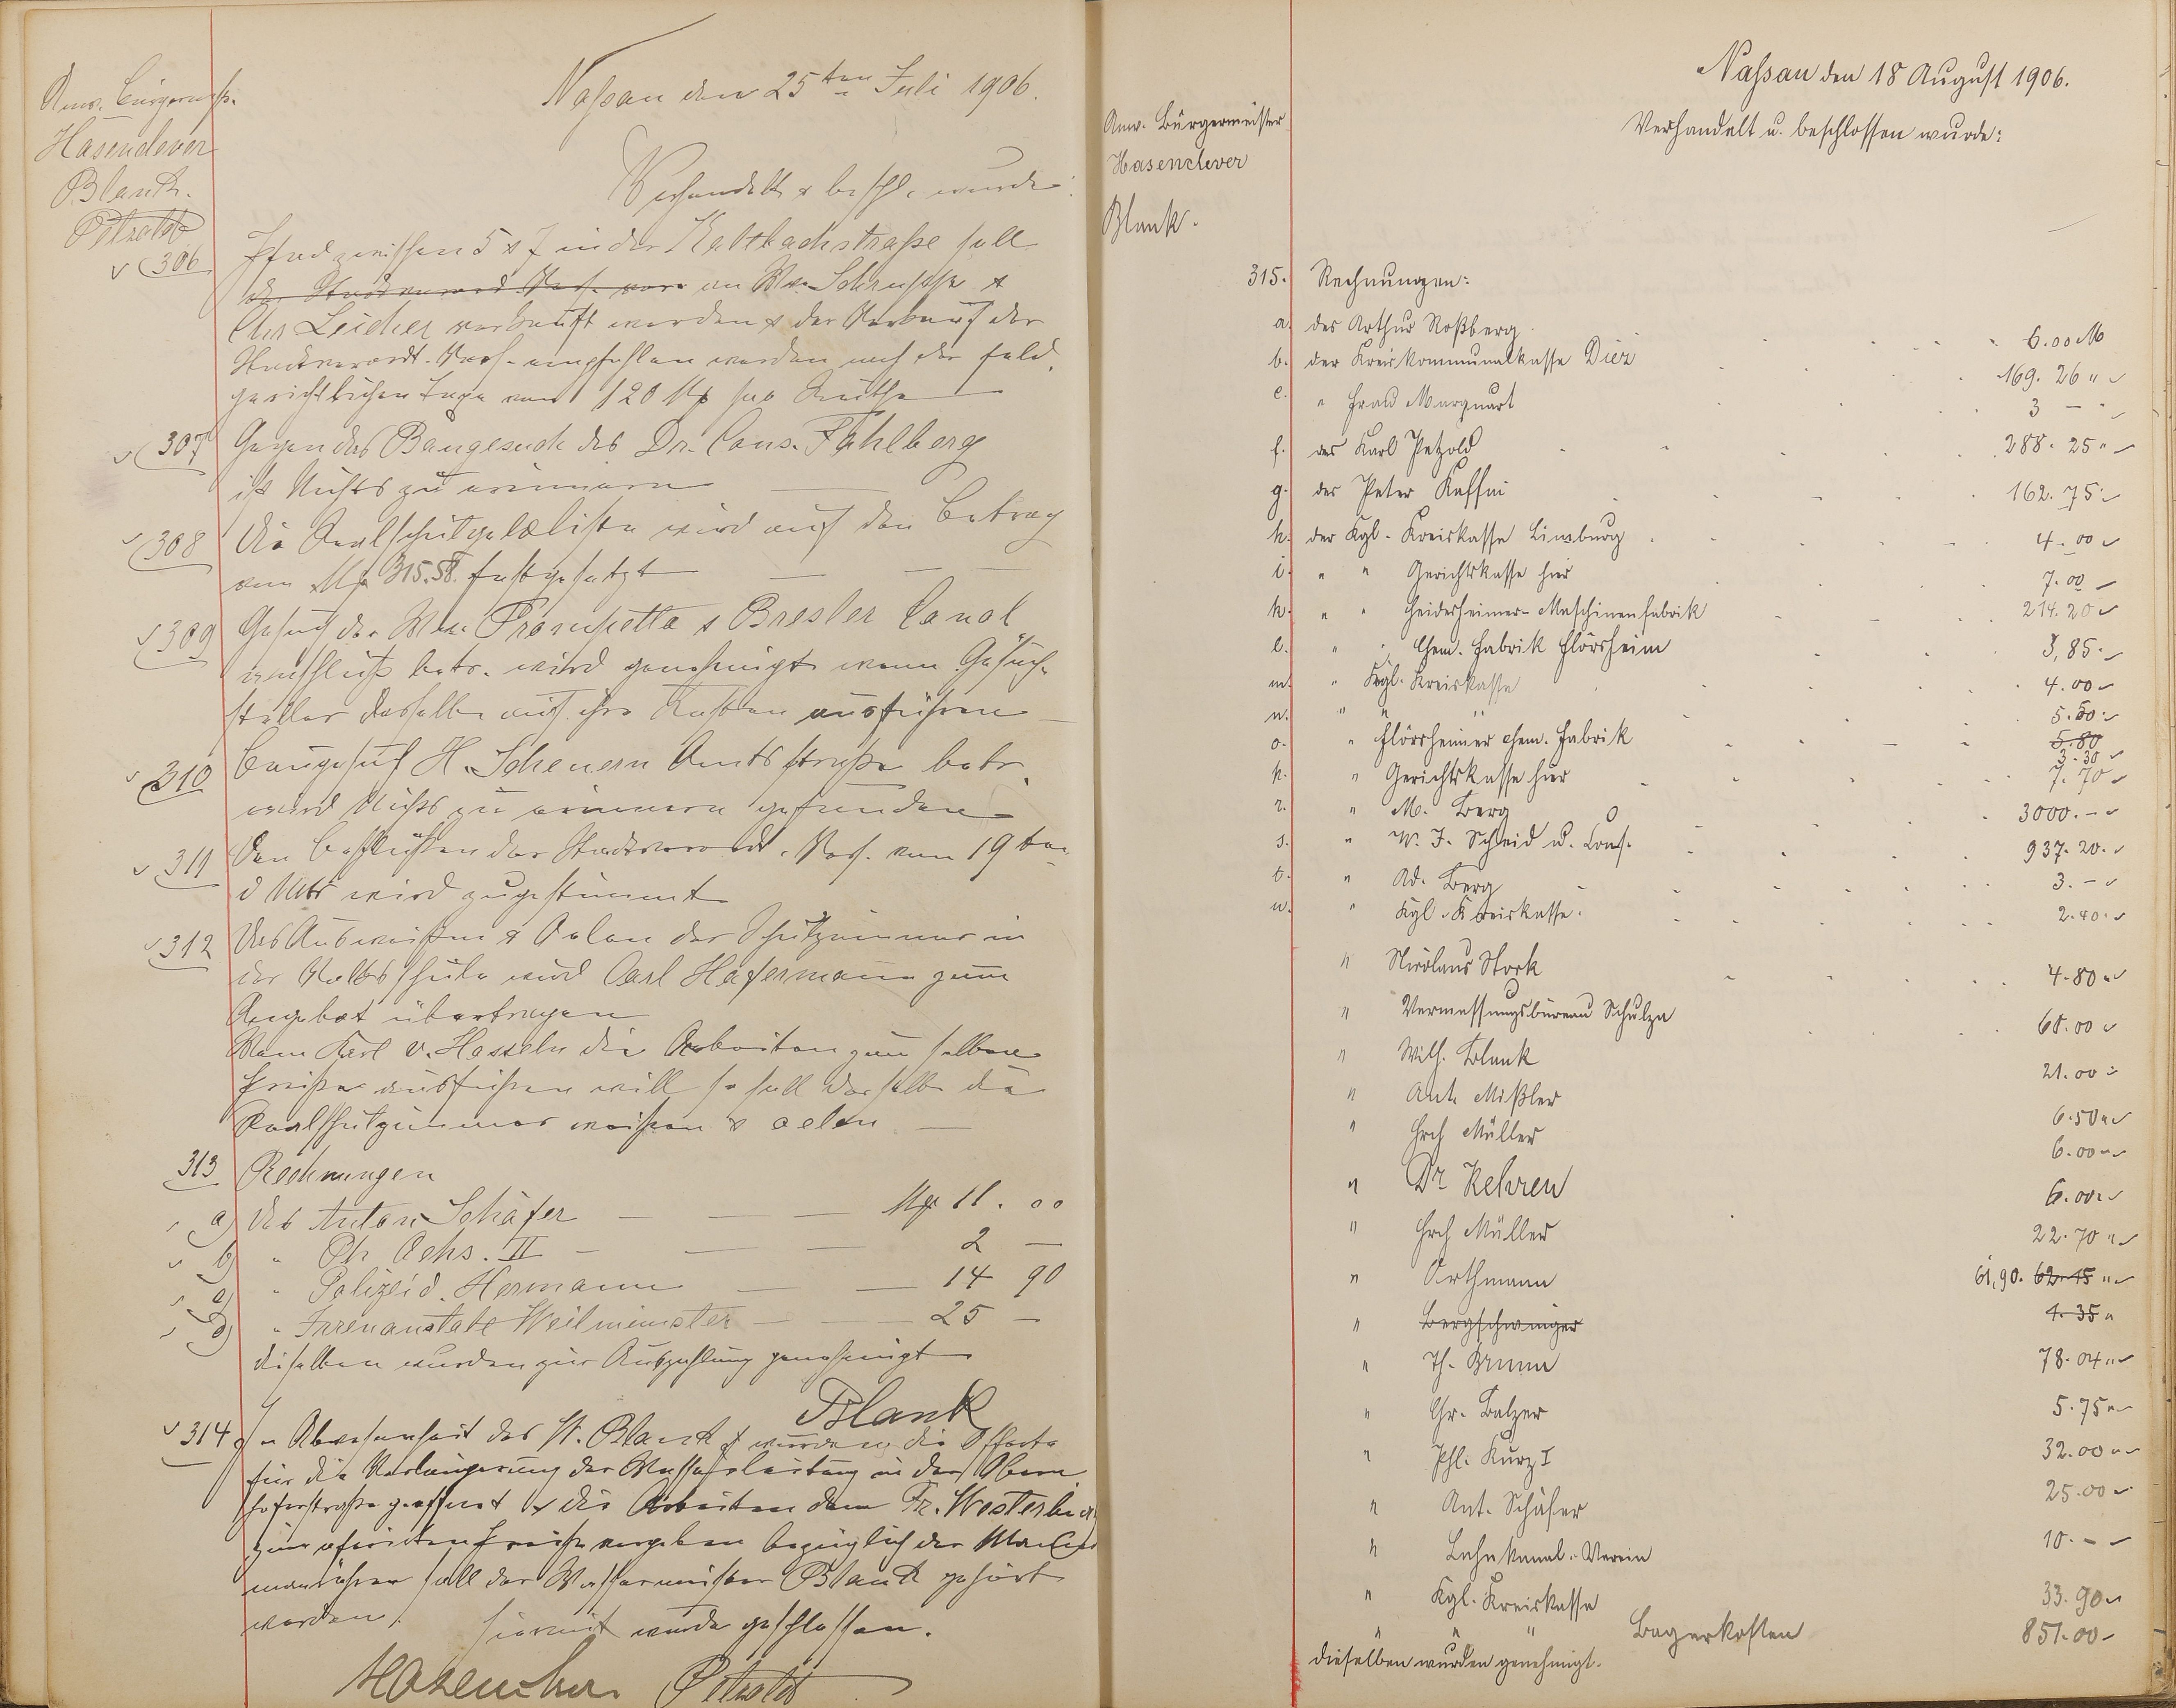 Nassau den 25ten Juli 1906.
Anw. Bürgermstr.
Hasenclever
Blank.
Petzoldt
Verhandelt & beschl. wurde:
306 Pfad zwischen 5 & 7 in der Kaltbachstraße soll
der Stadtverord. Vers. vom an Wwe. Schruppe &
Chr Leicher verkauft werden & der Verkauf der
Stadtverordt. Vers. empfohlen werden nach der feld-
gerichtlichen Taxe von 120 Mk pro Ruthe
307 Gegen das Baugesuch des Dr. Cons. Fahlberg
ist Nichts zu erinnern
308 Die Realschulgeldliste wird auf den Betrag
von Mk 315.58. festgesetzt
309 Gesuch der Wwe. Trompetta & Bresler Canal
anschluß betr. wird genehmigt wenn Gesuch-
steller dasselbe auf ihre Kosten ausführen
310 Baugesuch H. Scheuern Amtsstraße betr.
wird Nichts zu erinnern gefunden
311 Den Beschlüssen der Stadtverordt. Vers. vom 19ten
d Mts wird zugestimmt
312 Das Ausweißen & Oelen der Schulzimmer in
der Volksschule wird Carl Hafermann zum
Angebot übertragen
Wenn Karl v. Hasseln die Arbeiten zum selben
Preise ausführen will so soll derselbe die
Realschulzimmer weißen & oelen
313 Rechnungen
a) des Anton Schäfer Mk 11.00
b) " Ph Ochs. II 2 —
c) " Polizeid. Hermann 14 90
d) " Irrenanstalt Weilmünster 25 —
dieselben wurden zur Auszahlung genehmigt
Blank
314 In Abwesenheit des H. Blank wurden die Offerte
für die Verlängerung der Wasserleitung in der Obern-
hoferstraße geöffnet & die Arbeiten dem Fr. Westerbur
zum offerirten Preise vergeben bezüglich der
soll der Wassermeister Blank gehört
werden. hiermit wurde geschlossen.
Hasenclever Petzoldt
Naßau den 18 August 1906.
Verhandelt u. beschlossen wurde:
Anw. Bürgermeister
Hasenclever
Blank.
315. Rechnungen:
a. des Arthur Roßberg 6.00 M
b. der Kreiskommunalkasse Diez 169. 26 "
e. " Frau Marquart 3 — "
f. des Karl Petzold 288. 25 "
g. des Peter Kaffai 162. 75.
h. der Kgl. Kreiskasse Limburg 4.00
i. " " Gerichtskasse hier 7.00
k. " " Heidesheimer-Maschinenfabrik 214.20
l. " " Chem. Fabrik Flörsheim 3,85.
m. " Kgl. Kreiskasse 4.00
n. " " " 5.50.
o. " Flörsheimer chem. Fabrik 5.80 3.30
p. " Gerichtskasse hier 7.70
r. " M. Berg 3000.—
s. " W. J. Scheid u. Cons. 937.20.
t. " Ad. Berg 3.—
u. " Kgl. Kreiskasse. 2.40.
" Nicolaus Stork 4.80 "
" Vermessungsbureau Schulze 68.00
" Wilh. Blank 21.00
" Ant. Mißler 6.50 "
" Hrch Müller 6.00 "
" Dr. Kehren 6.00 "
" Hrch Müller 22.70 "
" Orthmann 61,90. 62.15 "
" Bergschwinger 4.35 "
" Th. Grimm 78.04 "
" Chr. Balzer 5.75 "
" Phl. Kurz I 32.00 "
" Ant. Schäfer 25.00
" Lahnkanal-Verein 10.—
" Kgl. Kreiskasse 33.90
" " " Bagerkosten 851.00
dieselben wurden genehmigt.